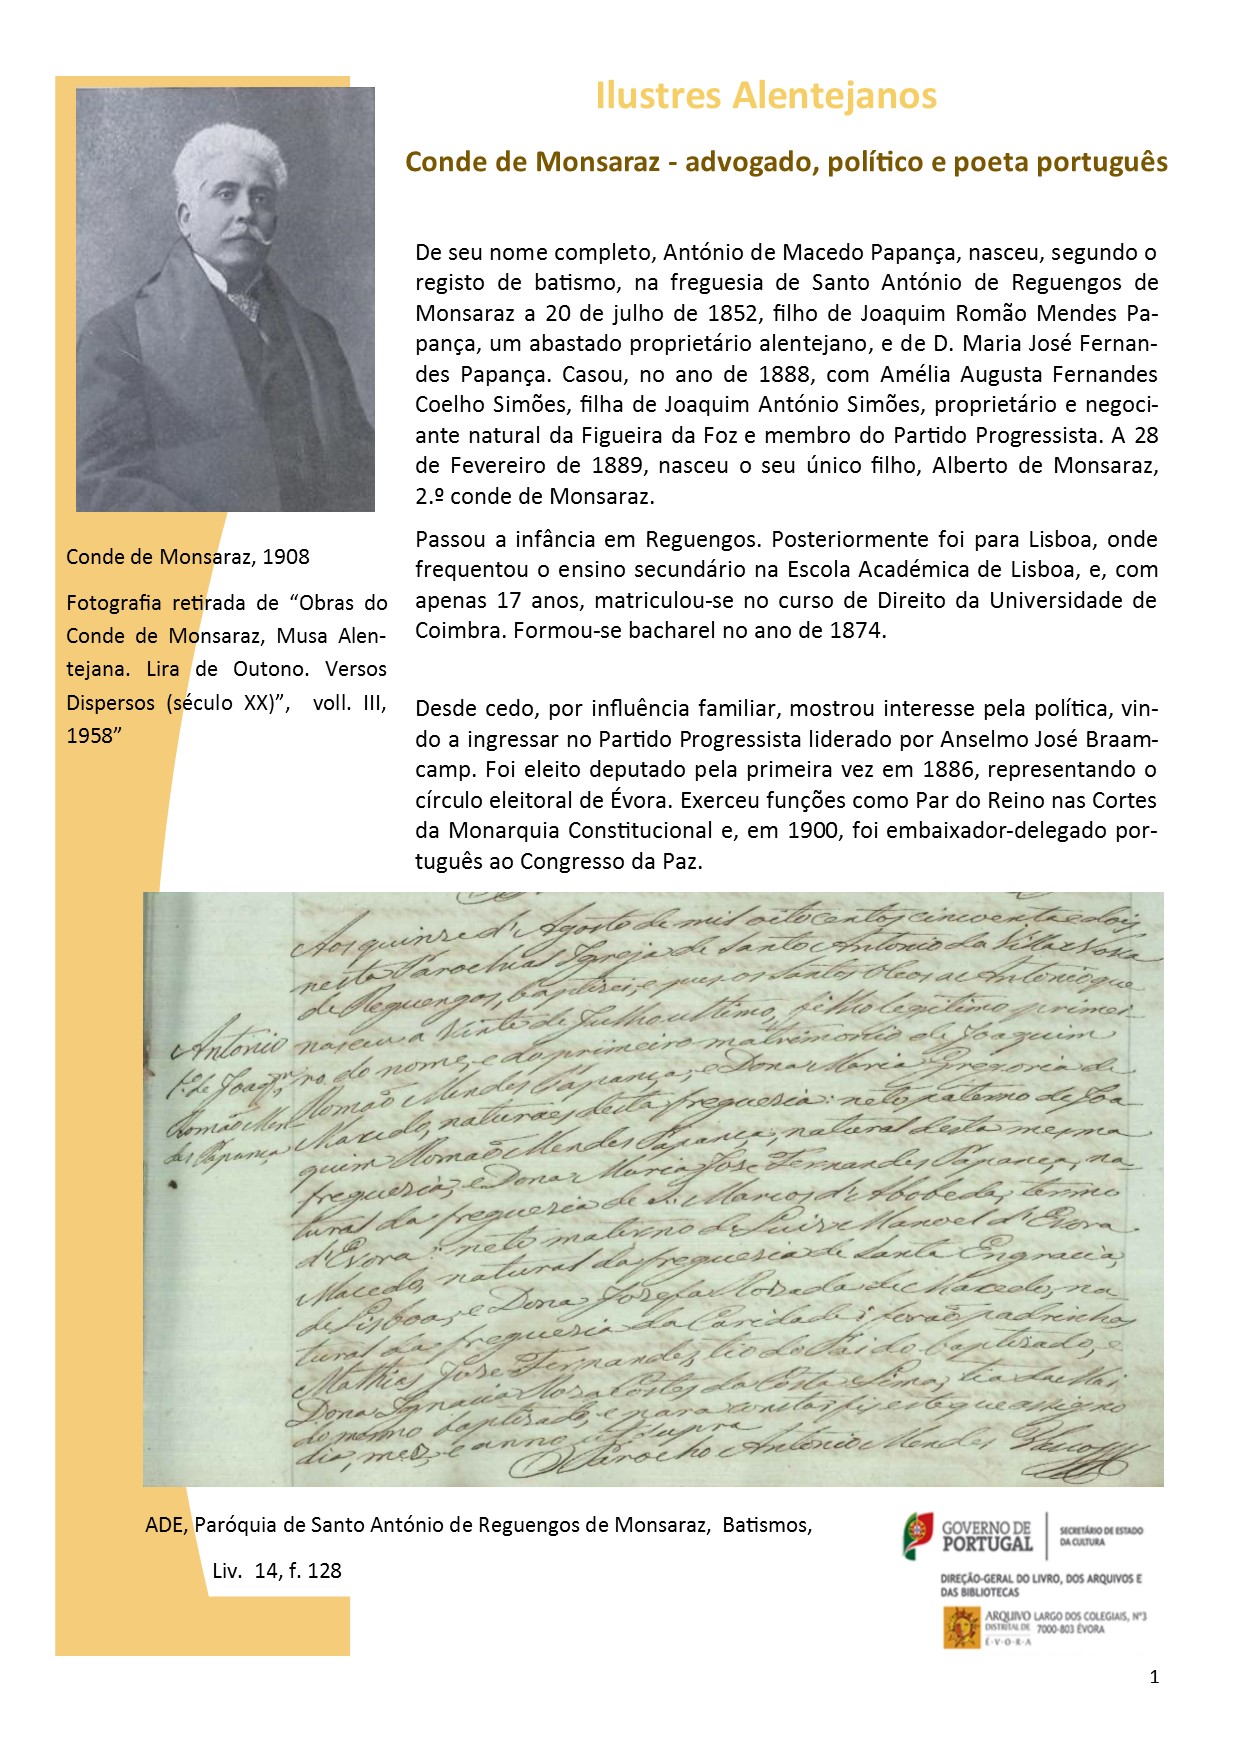 Ilustres Alentejanos
Conde de Monsaraz - advogado, político e poeta português
De seu nome completo, António de Macedo Papança, nasceu, segundo o
registo de batismo, na freguesia de Santo António de Reguengos de
Monsaraz a 20 de julho de 1852, filho de Joaquim Romão Mendes Pa-
pança, um abastado proprietário alentejano, e de D. Maria José Fernan-
des Papança. Casou, no ano de 1888, com Amélia Augusta Fernandes
Coelho Simões, filha de Joaquim António Simões, proprietário e negoci-
ante natural da Figueira da Foz e membro do Partido Progressista. A 28
de Fevereiro de 1889, nasceu o seu único filho, Alberto de Monsaraz,
2.º conde de Monsaraz.
Passou a infância em Reguengos. Posteriormente foi para Lisboa, onde
frequentou o ensino secundário na Escola Académica de Lisboa, e, com
apenas 17 anos, matriculou-se no curso de Direito da Universidade de
Coimbra. Formou-se bacharel no ano de 1874.
Desde cedo, por influência familiar, mostrou interesse pela política, vin-
do a ingressar no Partido Progressista liderado por Anselmo José Braam-
camp. Foi eleito deputado pela primeira vez em 1886, representando o
círculo eleitoral de Évora. Exerceu funções como Par do Reino nas Cortes
da Monarquia Constitucional e, em 1900, foi embaixador-delegado por-
tuguês ao Congresso da Paz.
Conde de Monsaraz, 1908
Fotografia retirada de “Obras do
Conde de Monsaraz, Musa Alen-
tejana. Lira de Outono. Versos
Dispersos (século XX)”, voll. III,
1958”
Antonio
f.º de Joaqm
Romão Men-
des Papança
Aos quinse d'Agosto de mil oito centos cincoenta e dois
nesta Parochial Igreja de Santo Antonio da Villa Nova
de Reguengos, baptisei, e pus os Santos Oleos a Antonio que
nasceu a vinte de Julho ultimo, filho legitimo primei-
ro do nome, e do primeiro matrimonio de Joaquim
Romaõ Mendes Papança, e Dona Maria Gregoria de
Macedo, naturaes desta freguesia: neto paterno de Joa
quim Romaõ Mendes Papança, natural desta mesma
freguesia, e Dona Maria Jose Fernandes Papança, na
tural da freguesia de S. Marcos d'Abobeda, termo
d'Evora: neto materno de Luis Manoel d'Evora
Macedo, natural da freguesia de Santa Engracia,
de Lisboa, e Dona Josefa Rosada de Macedo, na
tural da freguesia da Caridade: foraõ padrinhos
Mathias Jose Fernandes, tio do Pai do baptisado, e
Dona Ignacia Rosa Cortes da Costa Lima, tia da Mai
do mesmo baptisado, e para constar fis este que assigno
dia, mes, e anno ut supra
O Parocho Antonio Mendes
ADE, Paróquia de Santo António de Reguengos de Monsaraz, Batismos,
Liv. 14, f. 128
GOVERNO DE
PORTUGAL
SECRETÁRIO DE ESTADO
DA CULTURA
DIREÇÃO-GERAL DO LIVRO, DOS ARQUIVOS E
DAS BIBLIOTECAS
ARQUIVO
DISTRITAL DE
É·V·O·R·A
LARGO DOS COLEGIAIS, Nº3
7000-803 ÉVORA
1